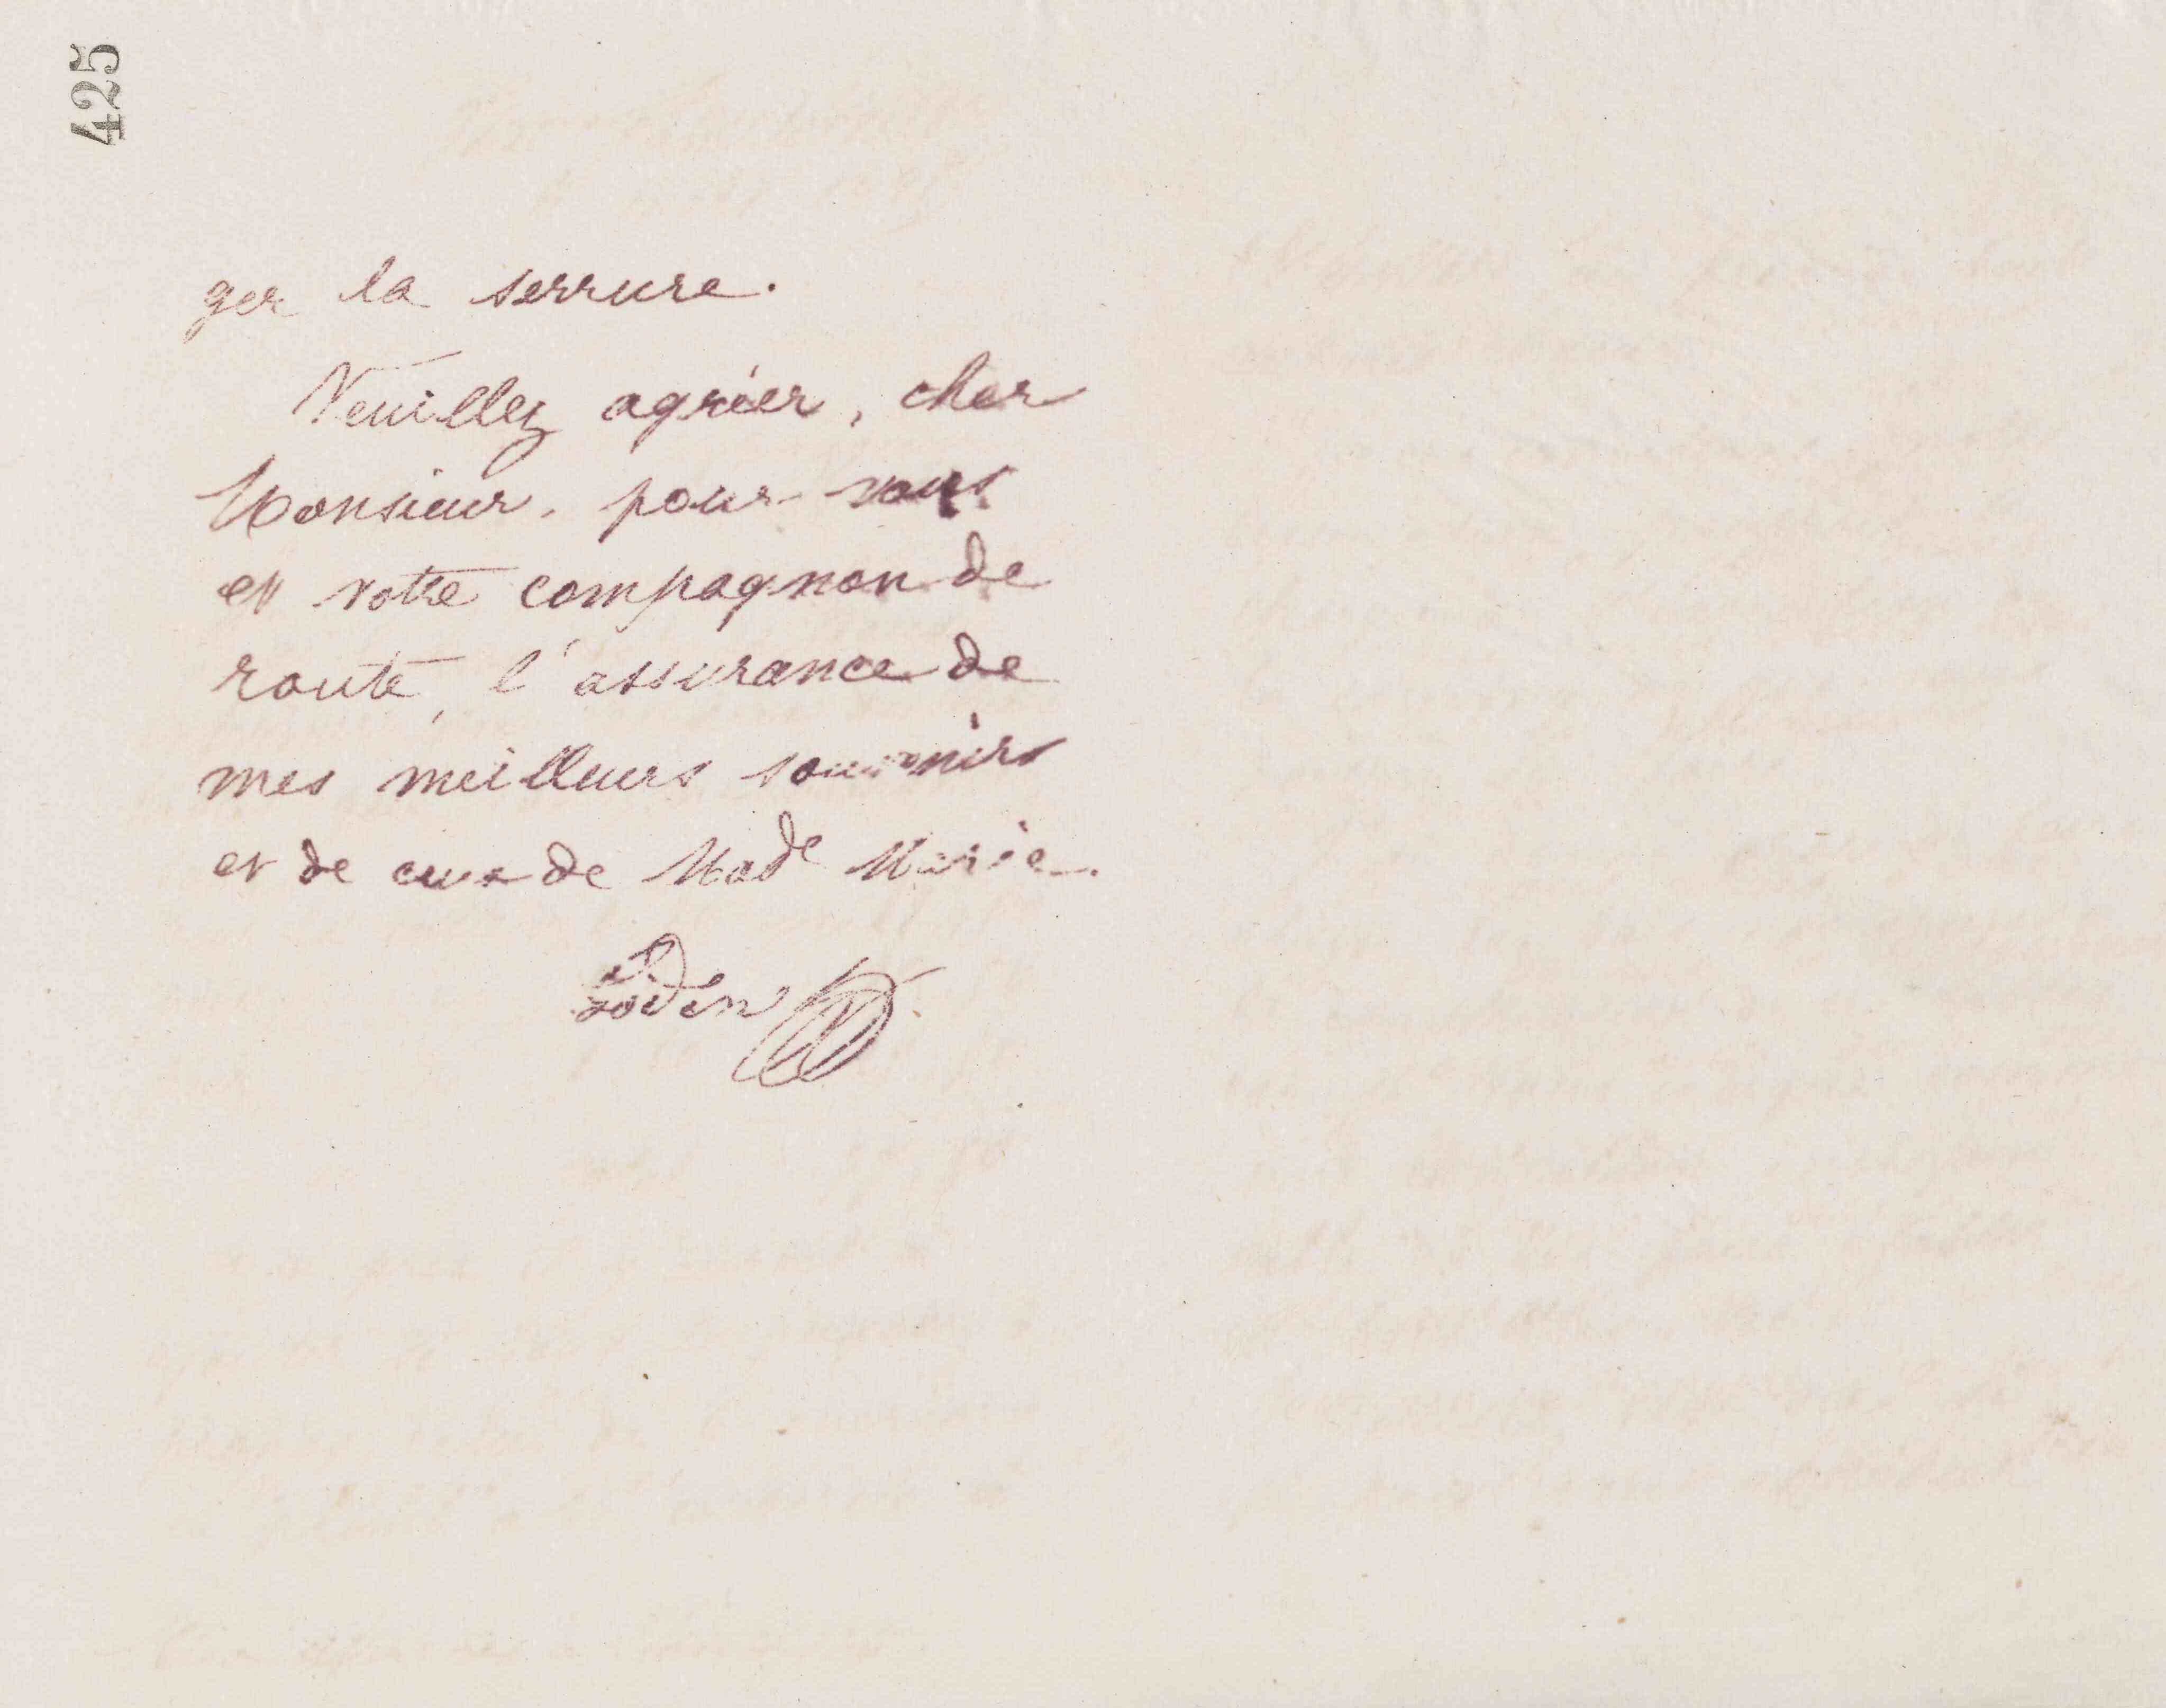 425
ger la serrure.
Veuillez agréer, cher
Monsieur, pour vous
et votre compagnon de
route, l'assurance de
mes meilleurs souvenirs
et de ceux de Made Marie.
Godin